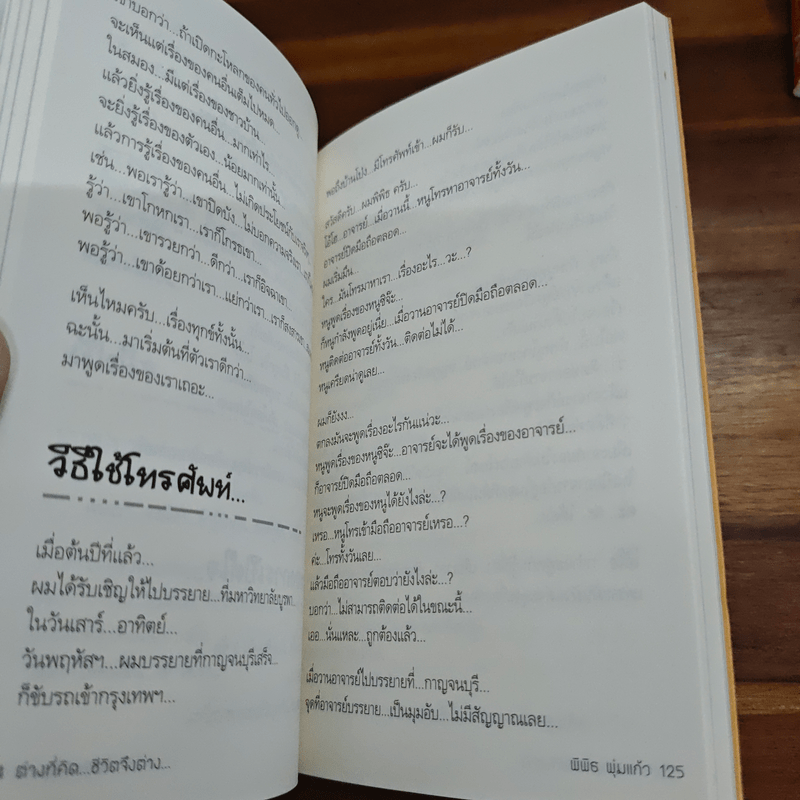 บอกว่า...ถ้าเปิดกะโหลกของคนทั่วไปออกดู
จะเห็นแต่เรื่องของคนอื่นเต็มไปหมด...
ในสมอง...มีแต่เรื่องของชาวบ้าน...
แล้วยิ่งรู้เรื่องของคนอื่น...มากเท่าไร...
จะยิ่งรู้เรื่องของตัวเอง...น้อยมากเท่านั้น
แล้วการรู้เรื่องของคนอื่น...ไม่เกิดประโยชน์กับเรา
เช่น...พอเรารู้ว่า...เขาปิดบัง...ไม่บอกความจริงเรา...
รู้ว่า...เขาโกหกเรา...เราก็โกรธเขา...
พอรู้ว่า...เขารวยกว่า...ดีกว่า...เราก็อิจฉาเขา...
พอรู้ว่า...เขาด้อยกว่าเรา...แย่กว่าเรา...เราก็
เห็นไหมครับ...เรื่องทุกข์ทั้งนั้น...
ฉะนั้น...มาเริ่มต้นที่ตัวเราดีกว่า...
มาพูดเรื่องของเราเถอะ...
วิธีใช้โทรศัพท์...
เมื่อต้นปีที่แล้ว...
ผมได้รับเชิญให้ไปบรรยาย...ที่มหาวิทยาลัยบูรพา...
ในวันเสาร์...อาทิตย์...
วันพฤหัสฯ...ผมบรรยายที่กาญจนบุรีเสร็จ...
ก็ขับรถเข้ากรุงเทพฯ...
ต่างที่คิด...ชีวิตจึงต่าง...
พอถึงบ้านโป่ง...มีโทรศัพท์เข้า...ผมก็รับ...
สวัสดีครับ ผมพิพิธ ครับ...
โอ้โฮ...อาจารย์...เมื่อวานนี้...หนูโทรหาอาจารย์ทั้งวัน...
อาจารย์ปิดมือถือตลอด...
ผมเริ่มมึน...
ใคร...มันโทรมาหาเรา...เรื่องอะไร...วะ...?
หนูพูดเรื่องของหนูซิจ๊ะ...
ก็หนูกำลังพูดอยู่เนี่ย...เมื่อวานอาจารย์ปิดมือถือตลอด...
หนูติดต่ออาจารย์ทั้งวัน...ติดต่อไม่ได้...
หนูเครียดน่าดูเลย...
ผมก็ยังงง...
ตกลงมันจะพูดเรื่องอะไรกันแน่วะ...?
หนูพูดเรื่องของหนูซิจ๊ะ...อาจารย์จะได้พูดเรื่องของอาจารย์...
ก็อาจารย์ปิดมือถือตลอด...
หนูจะพูดเรื่องของหนูได้ยังไงล่ะ...?
เหรอ...หนูโทรเข้ามือถืออาจารย์เหรอ...?
ค่ะ...โทรทั้งวันเลย...
แล้วมือถืออาจารย์ตอบว่ายังไงล่ะ...?
บอกว่า...ไม่สามารถติดต่อได้ในขณะนี้...
เออ...นั่นแหละ...ถูกต้องแล้ว...
เมื่อวานอาจารย์ไปบรรยายที่...กาญจนบุรี...
จุดที่อาจารย์บรรยาย...เป็นมุมอับ...ไม่มีสัญญาณเลย...
พิพิธ พุ่มแก้ว 125